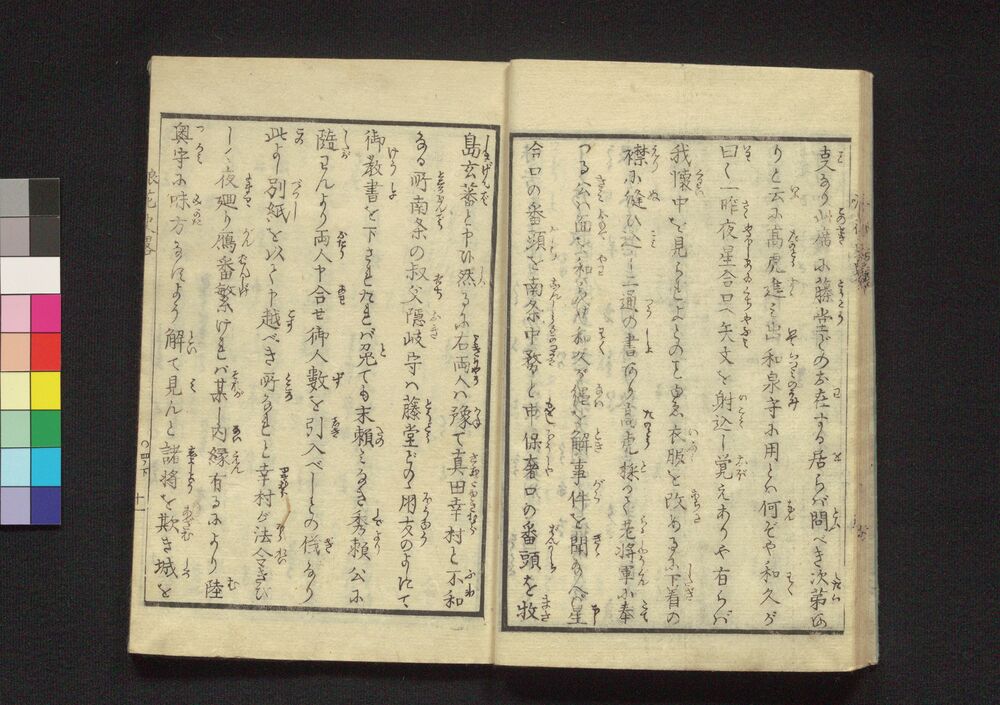 此席に藤堂どの在する居らば問べき次第あ
りと云に高虎進み出和泉守に用とは何ぞや和久が
曰く一昨夜星合口へ矢文を射込し覚えありや有らば
我懐中を見られよとのことゆゑ衣服を改めるに下着の
襟に縫ひ込し一通の書あり高虎採つて老将軍に奉
つる公の面を和らげ和久が縄を解事件を聞給へば星
合口の番頭を南条中務と申保奢口の番頭を牧
島玄蕃と申ひ然るに右両人は豫て真田幸村と不和
なる所南条の叔父隠岐守は藤堂どのゝ朋友のよしにて
御教書を下され九れば免ても末頼みなき秀頼公に
随はんより両人申合せ御人数を引入べしとの儀なり
此よし別紙を以て申越べき所なれど幸村が法令きび
しく夜廻り鴈番繁ければ某し内縁有るにより陸
奥守に味方なにより解て見んと諸将を欺き城を